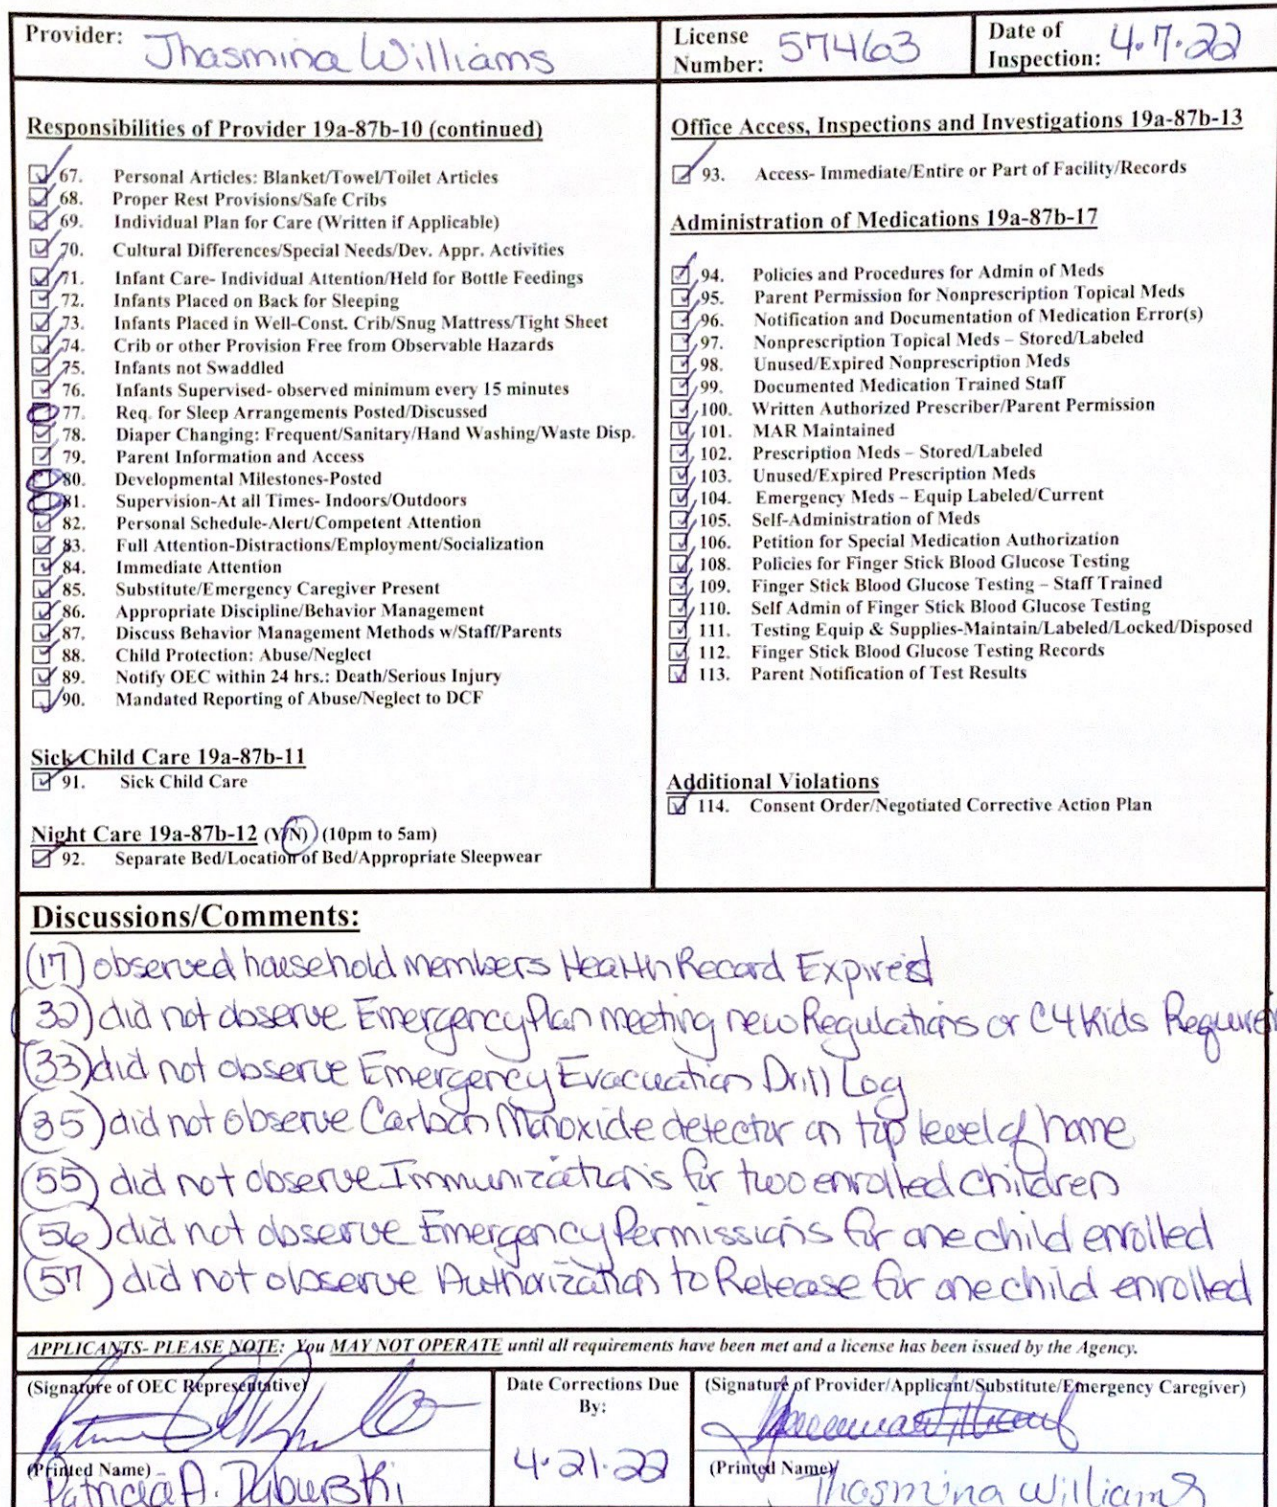 Provider: Jhasmina Williams
License Number: 57463
Date of Inspection: 4.7.22
Responsibilities of Provider 19a-87b-10 (continued)
67. Personal Articles: Blanket/Towel/Toilet Articles
68. Proper Rest Provisions/Safe Cribs
69. Individual Plan for Care (Written if Applicable)
70. Cultural Differences/Special Needs/Dev. Appr. Activities
71. Infant Care- Individual Attention/Held for Bottle Feedings
72. Infants Placed on Back for Sleeping
73. Infants Placed in Well-Const. Crib/Snug Mattress/Tight Sheet
74. Crib or other Provision Free from Observable Hazards
75. Infants not Swaddled
76. Infants Supervised- observed minimum every 15 minutes
77. Req. for Sleep Arrangements Posted/Discussed
78. Diaper Changing: Frequent/Sanitary/Hand Washing/Waste Disp.
79. Parent Information and Access
80. Developmental Milestones-Posted
81. Supervision-At all Times- Indoors/Outdoors
82. Personal Schedule-Alert/Competent Attention
83. Full Attention-Distractions/Employment/Socialization
84. Immediate Attention
85. Substitute/Emergency Caregiver Present
86. Appropriate Discipline/Behavior Management
87. Discuss Behavior Management Methods w/Staff/Parents
88. Child Protection: Abuse/Neglect
89. Notify OEC within 24 hrs.: Death/Serious Injury
90. Mandated Reporting of Abuse/Neglect to DCF
Sick Child Care 19a-87b-11
91. Sick Child Care
Night Care 19a-87b-12 (Y/N) (10pm to 5am)
92. Separate Bed/Location of Bed/Appropriate Sleepwear
Office Access, Inspections and Investigations 19a-87b-13
93. Access- Immediate/Entire or Part of Facility/Records
Administration of Medications 19a-87b-17
94. Policies and Procedures for Admin of Meds
95. Parent Permission for Nonprescription Topical Meds
96. Notification and Documentation of Medication Error(s)
97. Nonprescription Topical Meds – Stored/Labeled
98. Unused/Expired Nonprescription Meds
99. Documented Medication Trained Staff
100. Written Authorized Prescriber/Parent Permission
101. MAR Maintained
102. Prescription Meds – Stored/Labeled
103. Unused/Expired Prescription Meds
104. Emergency Meds – Equip Labeled/Current
105. Self-Administration of Meds
106. Petition for Special Medication Authorization
108. Policies for Finger Stick Blood Glucose Testing
109. Finger Stick Blood Glucose Testing – Staff Trained
110. Self Admin of Finger Stick Blood Glucose Testing
111. Testing Equip & Supplies-Maintain/Labeled/Locked/Disposed
112. Finger Stick Blood Glucose Testing Records
113. Parent Notification of Test Results
Additional Violations
114. Consent Order/Negotiated Corrective Action Plan
Discussions/Comments:
(17) observed household members Health Record Expired
(32) did not observe Emergency Plan meeting new Regulations or C4Kids
(33) did not observe Emergency Evacuation Drill Log
(35) did not observe Carbon Monoxide detector on top level of home
(55) did not observe Immunizations for two enrolled children
(56) did not observe Emergency Permissions for one child enrolled
(57) did not observe Authorization to Release for one child enrolled
APPLICANTS- PLEASE NOTE: You MAY NOT OPERATE until all requirements have been met and a license has been issued by the Agency.
(Signature of OEC Representative)
(Printed Name)
Patricia A.
Date Corrections Due By:
4.21.22
(Signature of Provider/Applicant/Substitute/Emergency Caregiver)
(Printed Name)
Jhasmina Williams